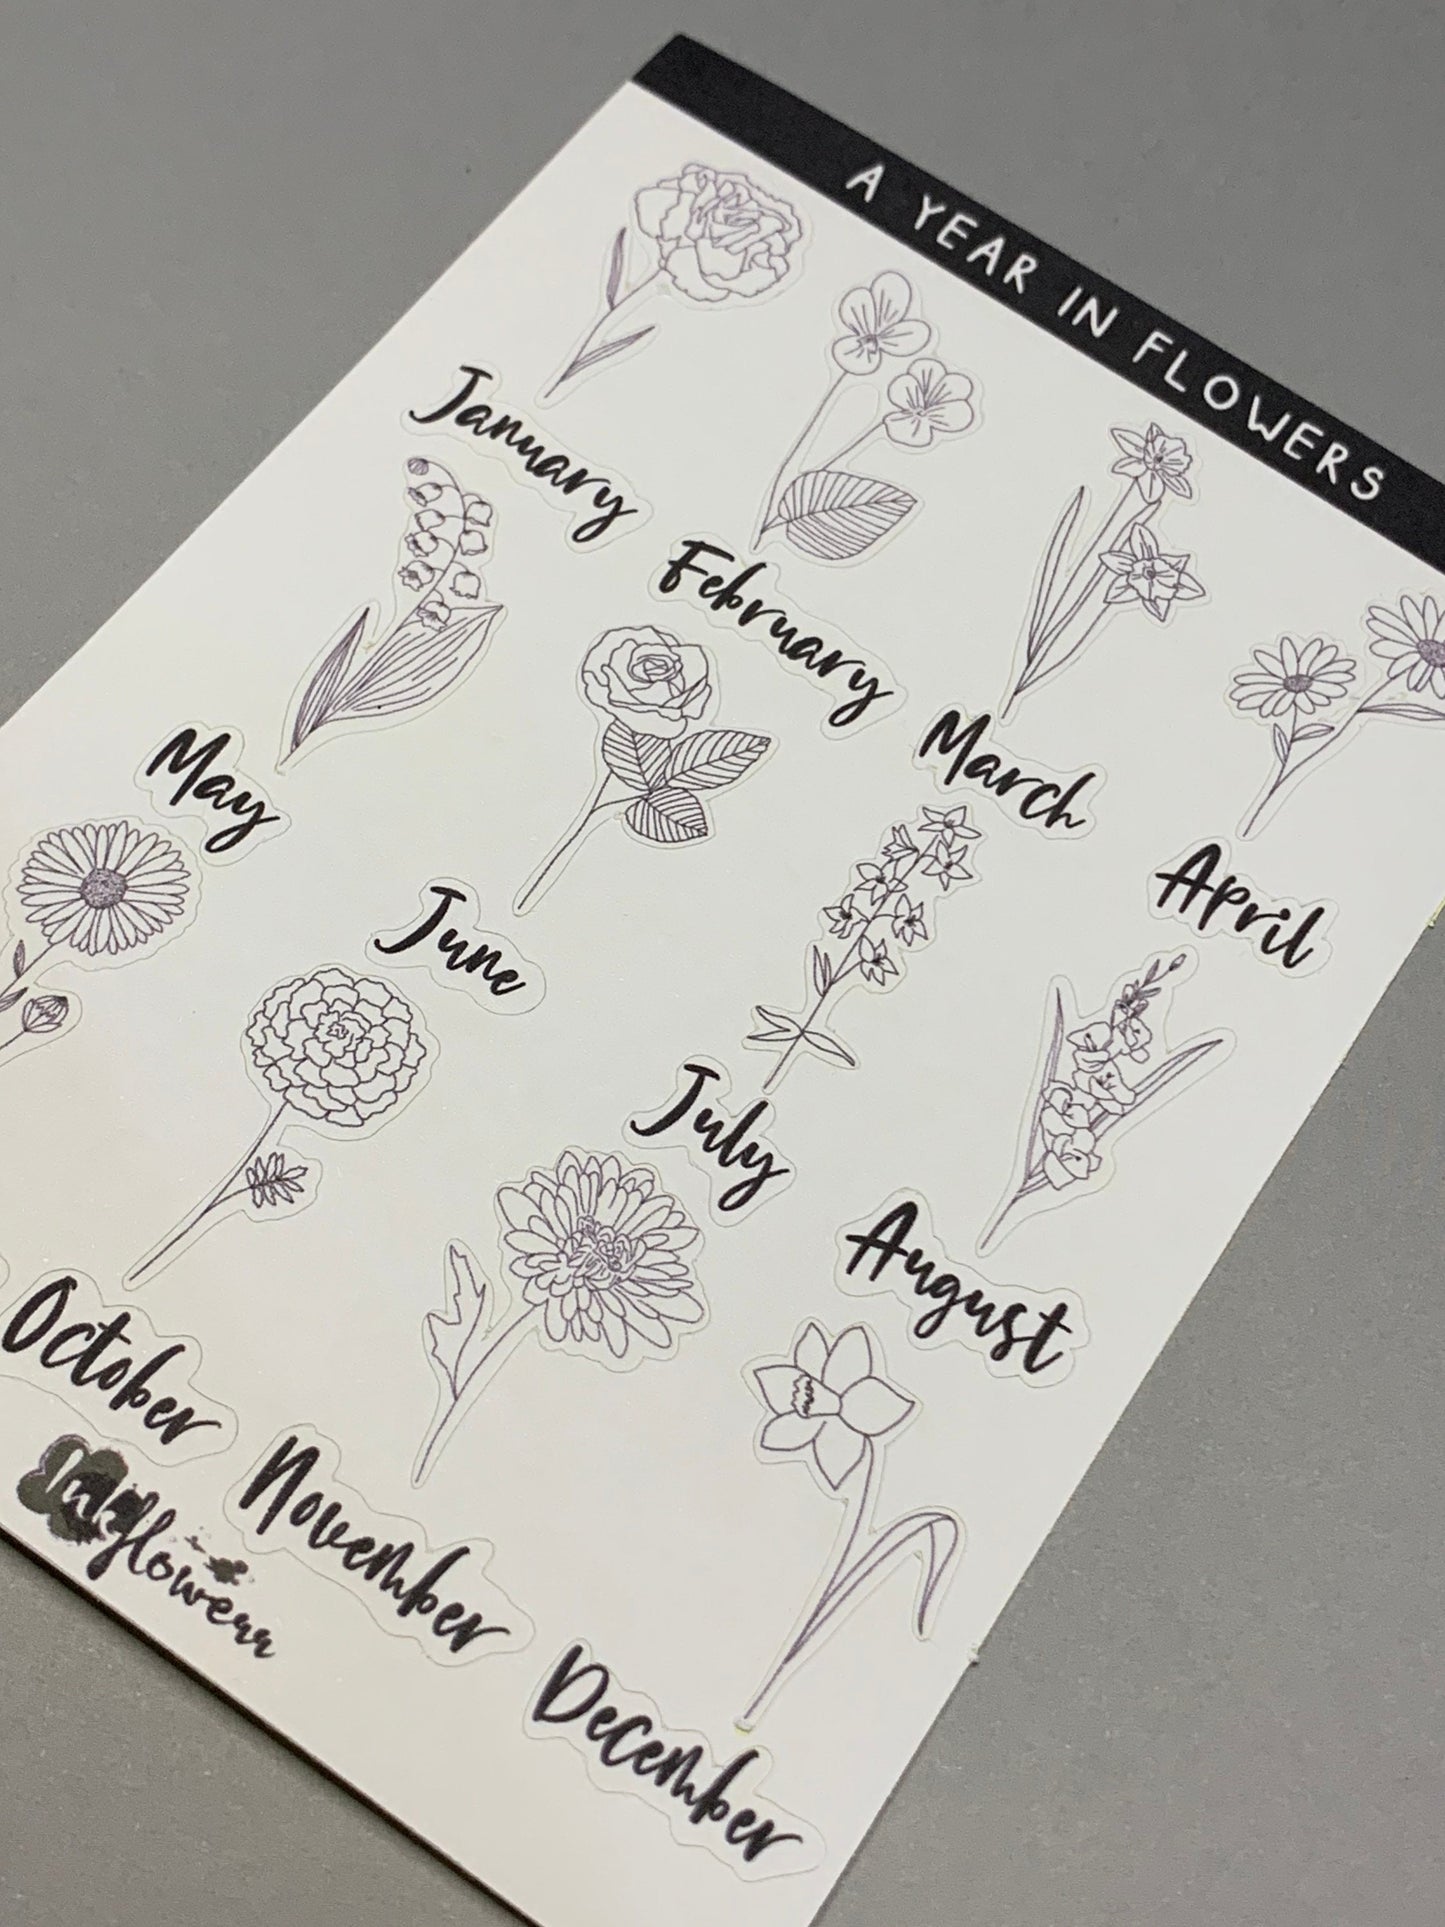 A YEAR IN FLOWERS
January
February
March
April
May
June
July
August
October
November
December